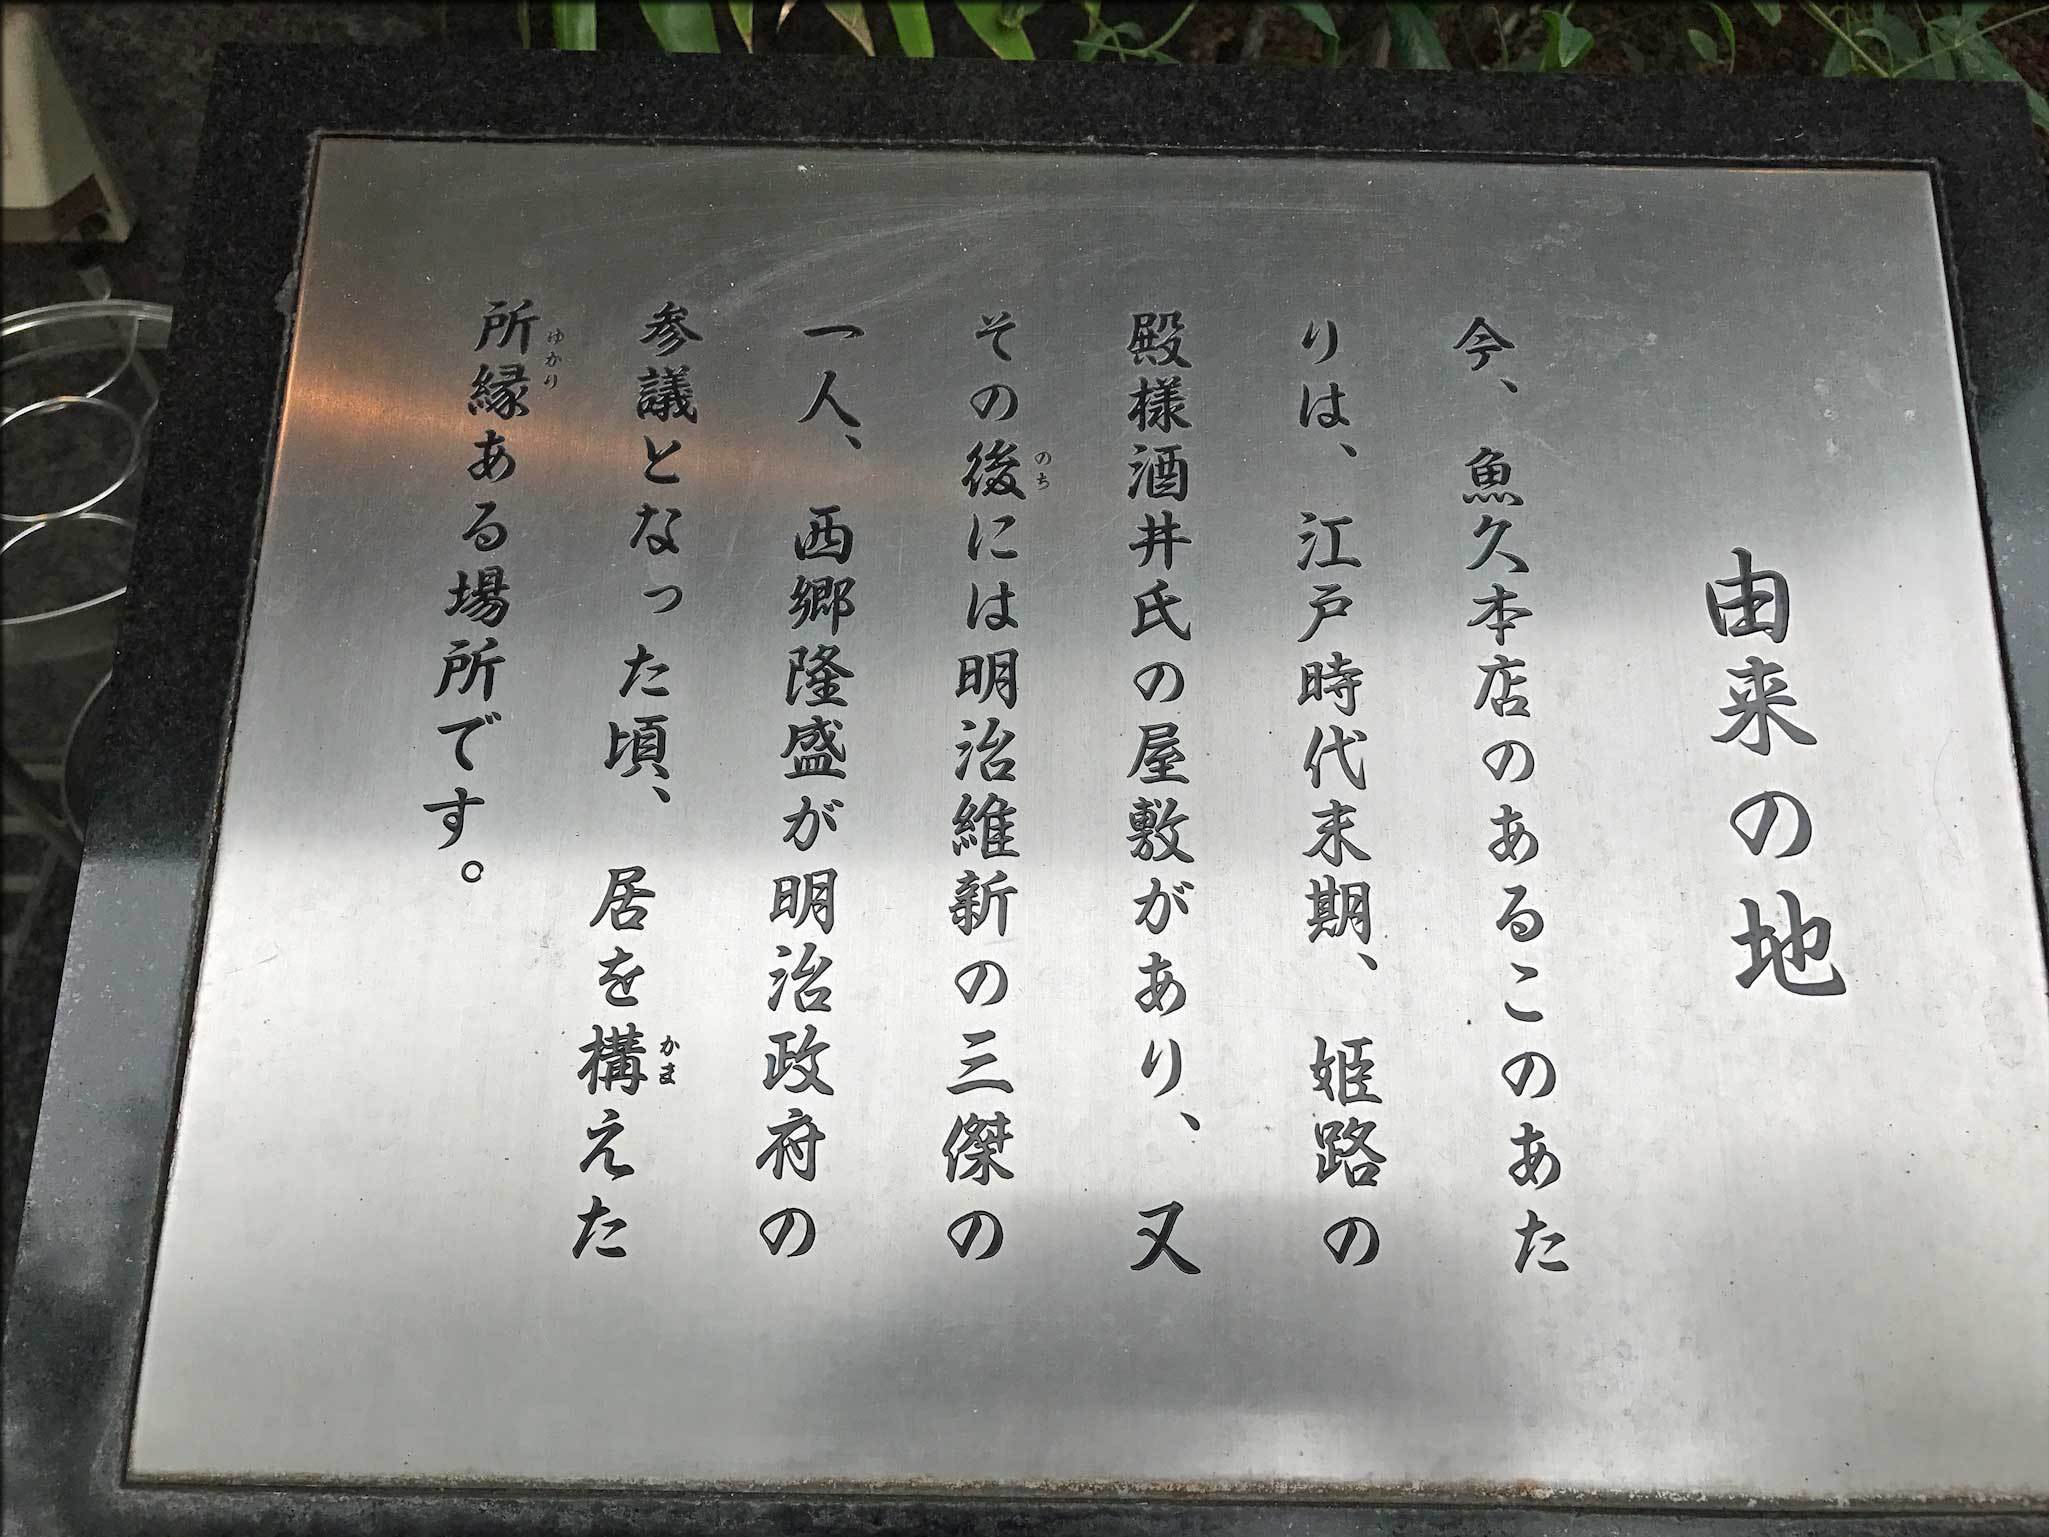 由来の地
今、魚久本店のあるこのあた
りは、江戸時代末期、姫路の
殿様酒井氏の屋敷があり、又
その後には明治維新の三傑の
のち
一人、西郷隆盛が明治政府の
参議となった頃、居を構えた
かま
所縁ある場所です。
ゆかり